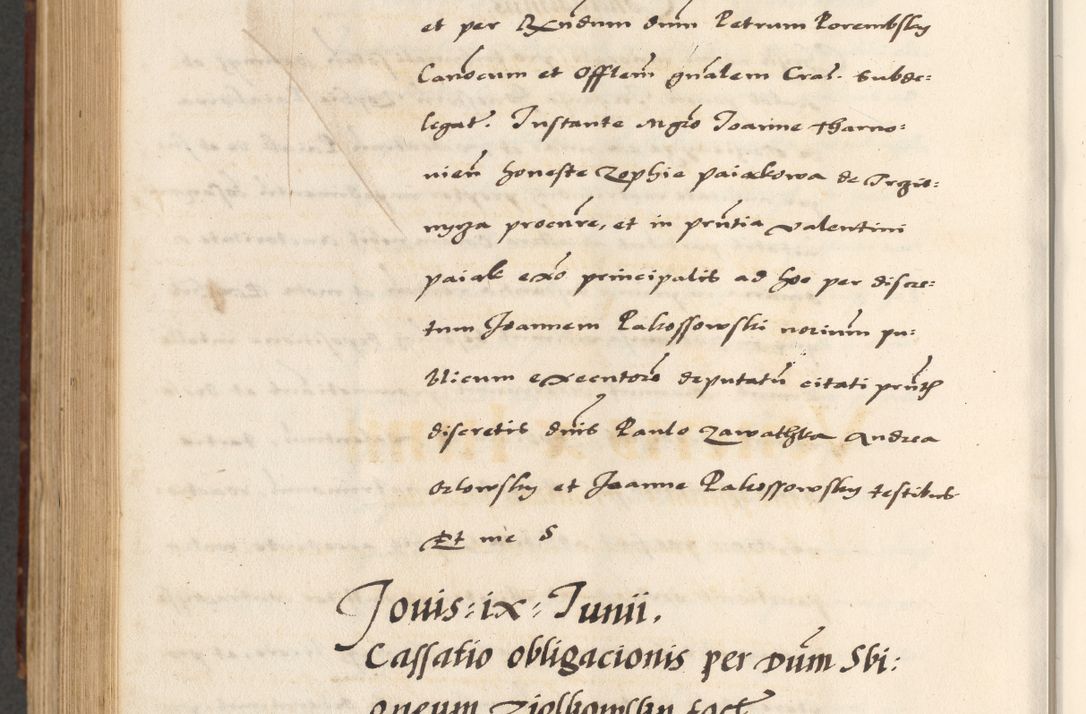 et per Rxndum dnm Petrum Porembsky
Canōcum et Offlem gnālem Cras. Subde:
legat. Instante Mgro Joanne Tharno:
nien honeste Zophie paiakowa de Trzio:
nyza procūre, et in prntia Valentini
paiak exō principalis ad hoc per discre:
tum Joannem Rakossowski norium pu:
blicum executorō deputatū citati prnth
discretis dnis Paulo Zawathka Andrea
Orlowsky et Joanne Rakossowsky testibus
Et me S
Jouis : ix : Junii.
Cassatio obligacionis per Dūm Sbi:
gneum Ziolkowsky fact